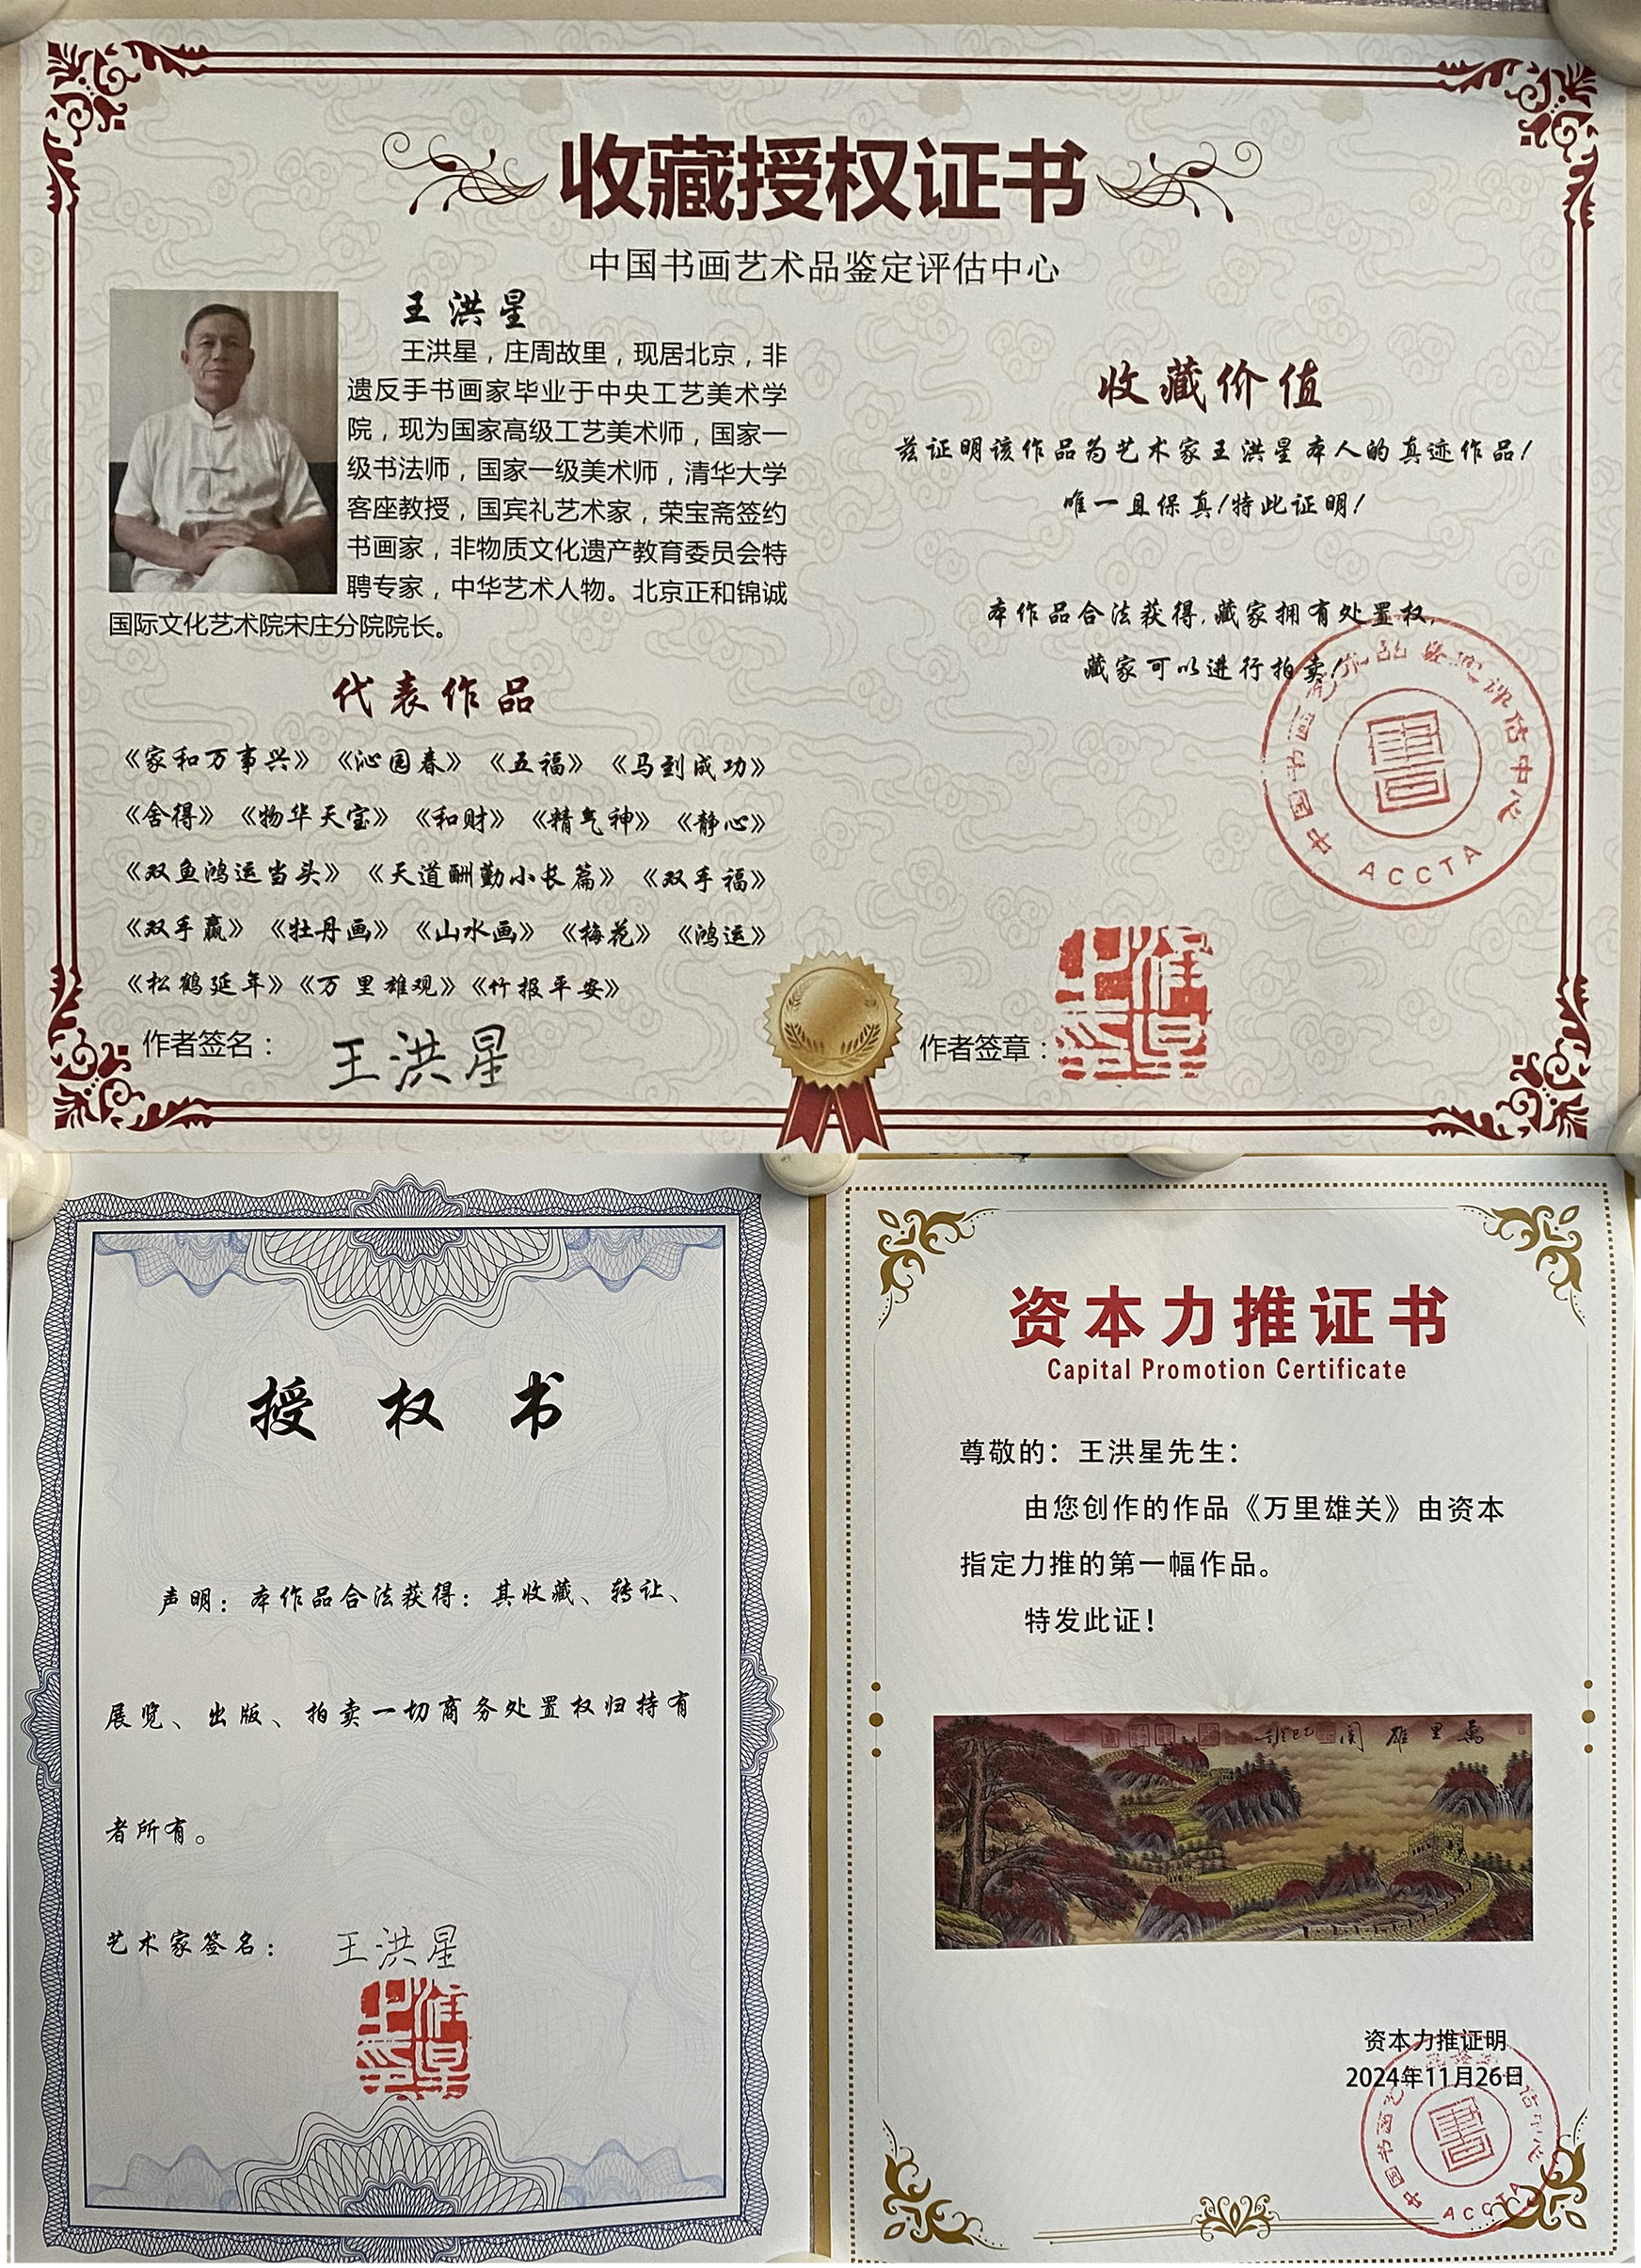 收藏授权证书
中国书画艺术品鉴定评估中心
王洪星
王洪星，庄周故里，现居北京，非
遗反手书画家毕业于中央工艺美术学
院，现为国家高级工艺美术师，国家一
级书法师，国家一级美术师，清华大学
客座教授，国宾礼艺术家，荣宝斋签约
书画家，非物质文化遗产教育委员会特
聘专家，中华艺术人物。北京正和锦诚
国际文化艺术院宋庄分院院长。
代表作品
《家和万事兴》《沁园春》《五福》《马到成功》
《舍得》《物华天宝》《和财》《精气神》《静心》
《双鱼鸿运当头》《天道酬勤小长篇》《双手福》
《双手赢》《牡丹画》《山水画》《梅花》《鸿运》
《松鹤延年》《万里雄观》《竹报平安》
作者签名：王洪星
收藏价值
兹证明该作品为艺术家王洪星本人的真迹作品！
唯一且保真！特此证明！
本作品合法获得，藏家拥有处置权，
藏家可以进行拍卖！
中国书画艺术品鉴定评估中心
ACCTA
作者签章：
授权书
声明：本作品合法获得：其收藏、转让、
展览、出版、拍卖一切商务处置权归持有
者所有。
艺术家签名：王洪星
资本力推证书
Capital Promotion Certificate
尊敬的：王洪星先生：
由您创作的作品《万里雄关》由资本
指定力推的第一幅作品。
特发此证！
萬里雄関
资本力推证明
2024年11月26日
ACCTA